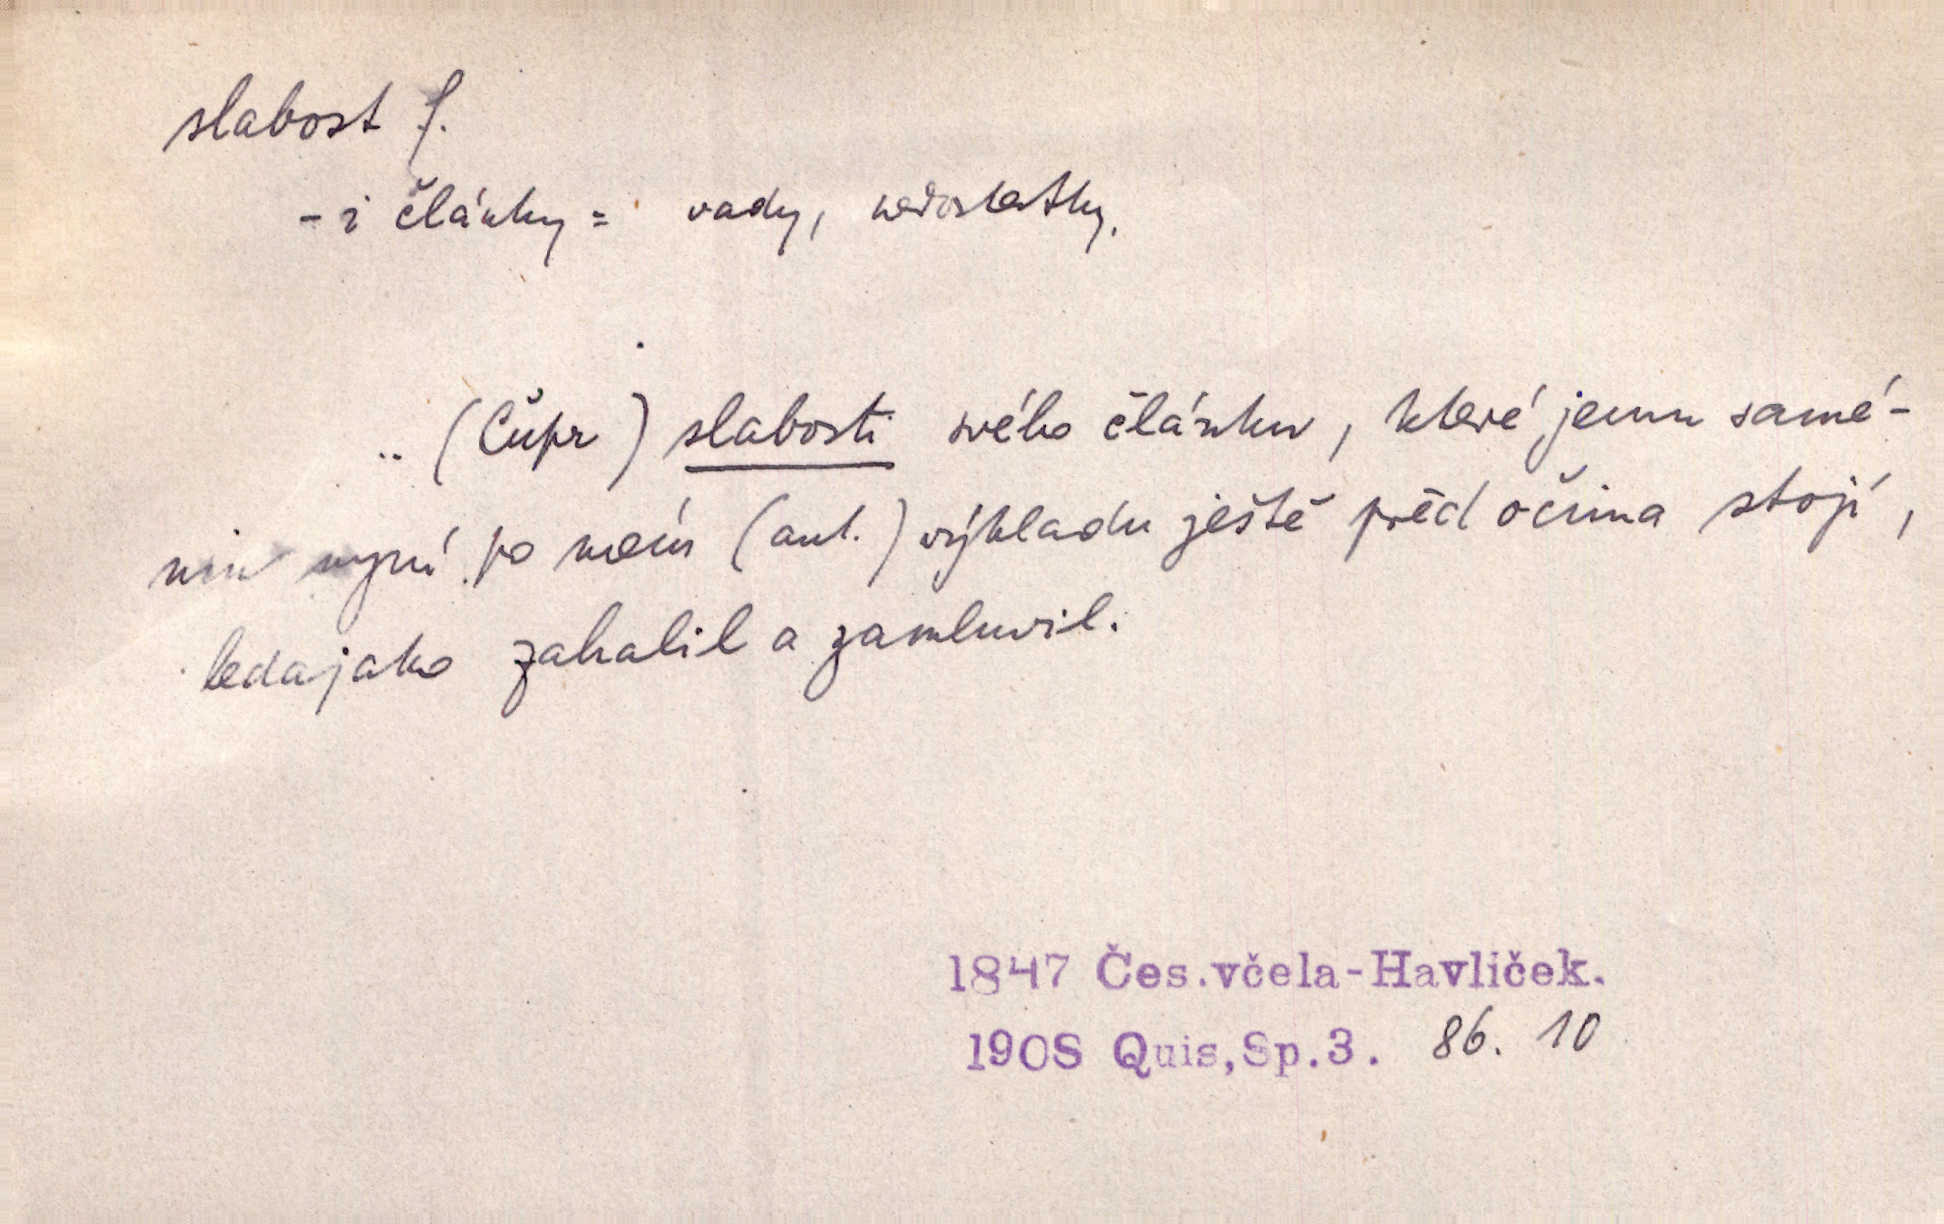 slabost f.
-i článku = vady, nedostatky.
.. (Čupr) slabosti svého článku, které jemu samé-
mu nyní po mém (aut.) výkladu ještě před očima stojí,
ledajako zahalil a zamluvil.
1847 Čes.včela-Havlíček.
190S Quis,Sp.3. 86. 10